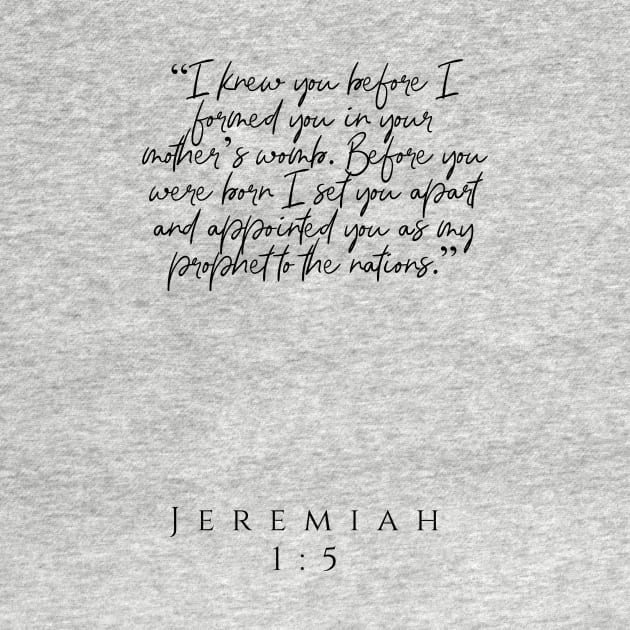 “I knew you before I
formed you in your
mother’s womb. Before you
were born I set you apart
and appointed you as my
prophet to the nations.”
JEREMIAH
1:5